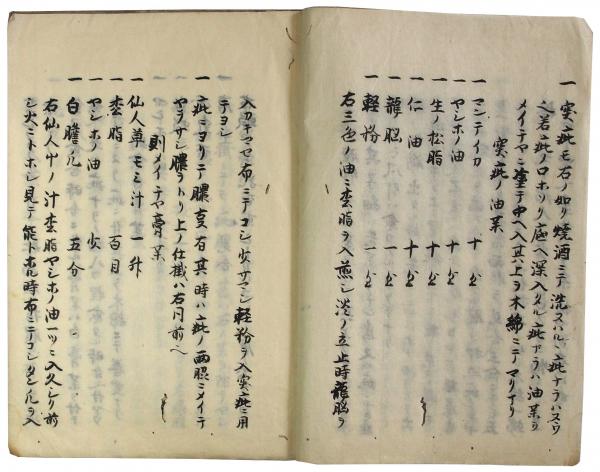 一 突疵モ右ノ如リ焼酒ニテ洗スハル疵ナラハスワ
ヘ若疵ノロホソリ底ヘ深入タル疵ナラハ油薬ヲ
メイチヤニ塗テ中ヘ入其上ヲ木綿ニテ
突疵ノ油薬
一 マンテイカ 十匁
一 ヤシホノ油 十匁
一 生ノ松脂 十匁
一 仁油 十匁
一 龍脳 一匁
一 軽粉 一匁
右三色ノ油ニ松脂ヲ入煎シ淡ノ立止時龍脳ヲ
入カキマセ布ニテコシ少サマシ軽粉ヲ入突疵ニ用
テヨシ
一 疵ニヨリテ膿支右其時ハ疵ノ両脇ニメイチ
ヤヲサシ膿ヲトリ上ノ仕掛ハ右同前ヘ
則メイチヤ膏薬
一 仙人草モミ汁 一升
一 松脂 百目
一 ヤシホノ油 少
一 白膽凡 五分
右仙人草ノ汁松脂ヤシホノ油一ツニ入久シリ前
シ火ニトホシ見テ能トホル時布ニテコシタン凡ヲ入